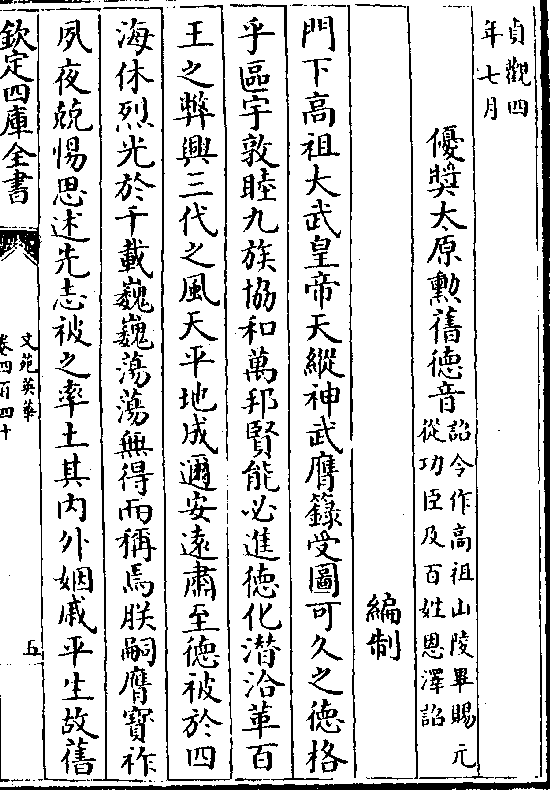 貞觀四
年七月
優奬太原勲舊德音詔令作高祖山陵畢賜元
從功臣及百姓恩澤詔
編制
門下高祖大武皇帝天縱神武膺籙受圖可久之德格
乎區宇敦睦九族協和萬邦賢能必進德化潛洽革百
王之弊興三代之風天平地成邇安遠肅至德被於四
海休烈光於千載巍巍蕩蕩無得而稱焉朕嗣膺寳祚
夙夜兢惕思述先志被之率土其内外姻戚平生故舊
欽定四庫全書
文苑英華
卷四百四十
五